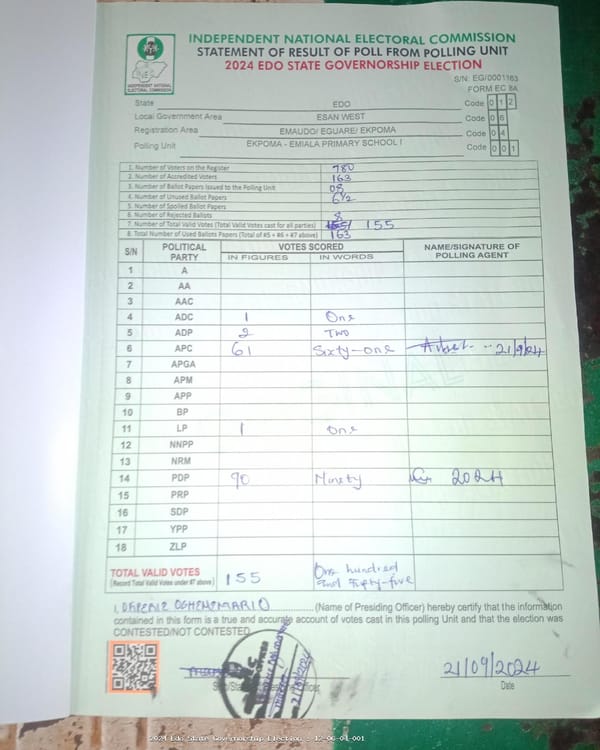 INDEPENDENT NATIONAL ELECTORAL COMMISSION
STATEMENT OF RESULT OF POLL FROM POLLING UNIT
2024 EDO STATE GOVERNORSHIP ELECTION
INDEPENDENT NATIONAL ELECTORAL COMMISSION
S/N: EG/0001163
FORM EC 8A
State EDO Code 0 1 2
Local Government Area ESAN WEST Code 0 6
Registration Area EMAUDO/ EGUARE/ EKPOMA Code 0 4
Polling Unit EKPOMA - EMIALA PRIMARY SCHOOL I Code 0 0 1
1. Number of Voters on the Register 780
2. Number of Accredited Voters 163
3. Number of Ballot Papers Issued to the Polling Unit
4. Number of Unused Ballot Papers
5. Number of Spoiled Ballot Papers
6. Number of Rejected Ballots 8
7. Number of Total Valid Votes (Total Valid Votes cast for all parties) 155
8. Total Number of Used Ballots Papers (Total of #5 + #6 + #7 above) 163
S/N POLITICAL PARTY VOTES SCORED NAME/SIGNATURE OF POLLING AGENT
IN FIGURES IN WORDS
1 A
2 AA
3 AAC
4 ADC 1 One
5 ADP 2 Two
6 APC 61 Sixty-one 21/9/24
7 APGA
8 APM
9 APP
10 BP
11 LP 1 One
12 NNPP
13 NRM
14 PDP 90 Ninety 2024
15 PRP
16 SDP
17 YPP
18 ZLP
TOTAL VALID VOTES 155 One hundred
(Record Total Valid Votes under #7 above) and fifty-five
I, OGHENEMARIO (Name of Presiding Officer) hereby certify that the information
contained in this form is a true and accurate account of votes cast in this polling Unit and that the election was
CONTESTED/NOT CONTESTED.
21/09/2024
Date
2024 Edo State Governorship Election - 12-06-04-001